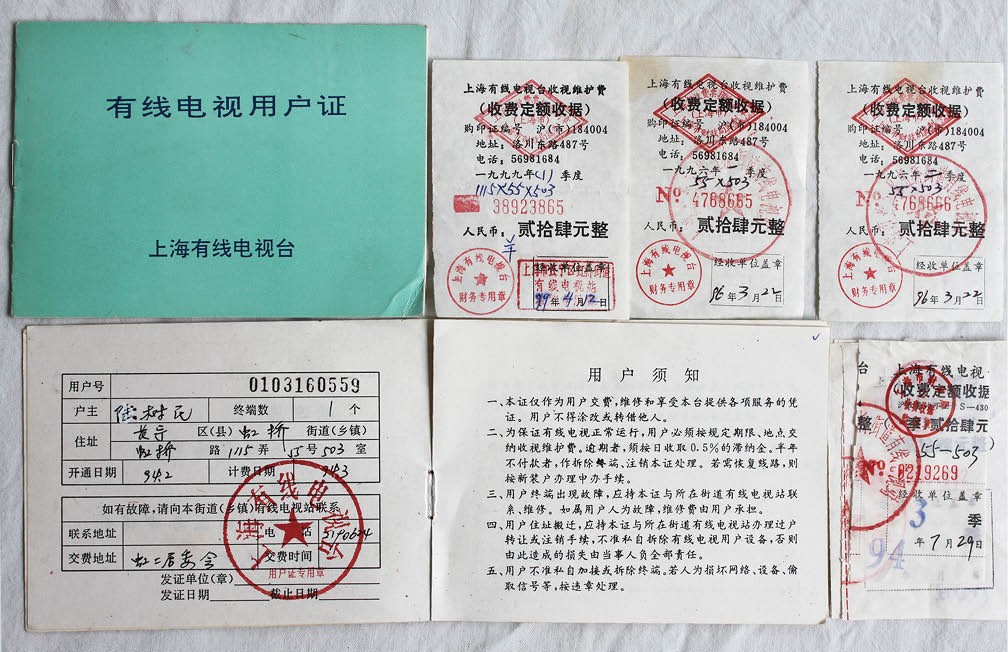 有线电视用户证
上海有线电视台
上海有线电视台收视维护费
(收费定额收据)
购印证编号 沪(市)184004
地址: 洛川东路487号
电话: 56981684
一九九九年(1)季度
1115×55×503
38923865
人民币: 贰拾肆元整
经收单位盖章
上海有线电视台
财务专用章
有线电视站
99年4月12日
上海有线电视台收视维护费
(收费定额收据)
购印证编号 沪(市)184004
地址: 洛川东路487号
电话: 56981684
一九九六年一季度
55×503
№ 4768665
人民币: 贰拾肆元整
经收单位盖章
上海有线电视台
财务专用章
96年3月22日
上海有线电视台收视维护费
(收费定额收据)
购印证编号 沪(市)184004
地址: 洛川东路487号
电话: 56981684
一九九六年二季度
55×503
№ 4768666
人民币: 贰拾肆元整
经收单位盖章
上海有线电视台
财务专用章
96年3月22日
用户号 0103160559
户主 陆树民 终端数 1 个
住址 长宁 区(县) 虹桥 街道(乡镇)
虹桥 路 1115 弄 55号 503 室
开通日期 94.2 计费日期 94.3
如有故障,请向本街道(乡镇)有线电视站联系
联系地址 电话
交费地址 虹二居委会 交费时间
发证单位(章)
发证日期 截止日期
上海有线电视台
用户证专用章
用户须知
一、本证仅作为用户交费,维修和享受本台提供各项服务的凭
证。用户不得涂改或转借他人。
二、为保证有线电视正常运行,用户必须按规定期限、地点交
纳收视维护费。逾期者,须按日收取0.5%的滞纳金。半年
不付款者,作拆除终端、注销本证处理。若需恢复线路,则
按新装户办理申办手续。
三、用户终端出现故障,应持本证与所在街道有线电视站联
系、维修。如属用户人为故障,维修费由用户承担。
四、用户住址搬迁,应持本证与所在街道有线电视站办理过户
转让或注销手续,不准私自拆除有线电视用户设备,否则
由此造成的损失由当事人员全部责任。
五、用户不准私自加接或拆除终端。若人为损坏网络、设备、偷
取信号等,按违章处理。
台 上海有线电视
(收费定额收据
整 季 贰拾肆元整
55-503
№ 0219269
经收单位盖章
3 季
年7月29日
94